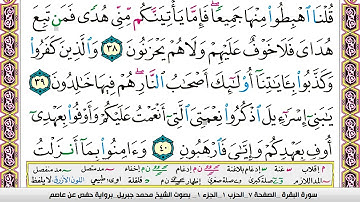 قُلْنَا ٱهْبِطُوا۟ مِنْهَا جَمِيعًا ۖ فَإِمَّا يَأْتِيَنَّكُم مِّنِّى هُدًى فَمَن تَبِعَ
هُدَاىَ فَلَا خَوْفٌ عَلَيْهِمْ وَلَا هُمْ يَحْزَنُونَ ٣٨ وَٱلَّذِينَ كَفَرُوا۟
وَكَذَّبُوا۟ بِـَٔايَـٰتِنَآ أُو۟لَـٰٓئِكَ أَصْحَـٰبُ ٱلنَّارِ ۖ هُمْ فِيهَا خَـٰلِدُونَ ٣٩
يَـٰبَنِىٓ إِسْرَٰٓءِيلَ ٱذْكُرُوا۟ نِعْمَتِىَ ٱلَّتِىٓ أَنْعَمْتُ عَلَيْكُمْ وَأَوْفُوا۟ بِعَهْدِىٓ
أُوفِ بِعَهْدِكُمْ وَإِيَّـٰىَ فَٱرْهَبُونِ ٤٠ وَءَامِنُوا۟ بِمَآ أَنزَلْتُ
سورة البقرة . الصفحة ٧ . الحزب ١ . الجزء ١ . بصوت الشيخ محمد جبريل . برواية حفص عن عاصم